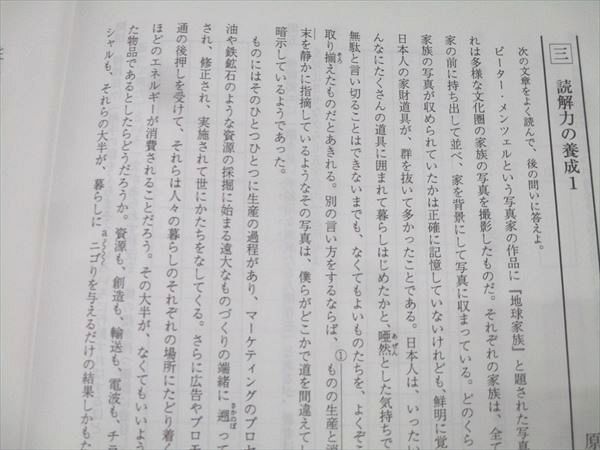 三 読解力の養成1
原
次の文章をよく読んで、後の問いに答えよ。
ピーター・メンツェルという写真家の作品に『地球家族』と題された写真
れは多様な文化圏の家族の写真を撮影したものだ。それぞれの家族は、全て
家の前に持ち出して並べ、家を背景にして写真に収まっている。どのくら
家族の写真が収められていたかは正確に記憶していないけれども、鮮明に覚
日本人の家財道具が、群を抜いて多かったことである。日本人は、いったい
んなにたくさんの道具に囲まれて暮らしはじめたかと、唖然とした気持ちで
あぜん
無駄と言い切ることはできないまでも、なくてもよいものたちを、よくぞこ
取り揃えたものだとあきれる。別の言い方をするならば、①ものの生産と消
そろ
末を静かに指摘しているようなその写真は、僕らがどこかで道を間違えてし
暗示しているようであった。
ものにはそのひとつひとつに生産の過程があり、マーケティングのプロセ
油や鉄鉱石のような資源の採掘に始まる遠大なものづくりの端緒に遡って
さかのぼ
され、修正され、実施されて世にかたちをなしてくる。さらに広告やプロモ
通の後押しを受けて、それらは人々の暮らしのそれぞれの場所にたどり着く
ほどのエネルギーが消費されることだろう。その大半が、なくてもいいよう
た物品であるとしたらどうだろうか。資源も、創造も、輸送も、電波も、チラ
シャルも、それらの大半が、暮らしにaニゴりを与えるだけの結果しかもた